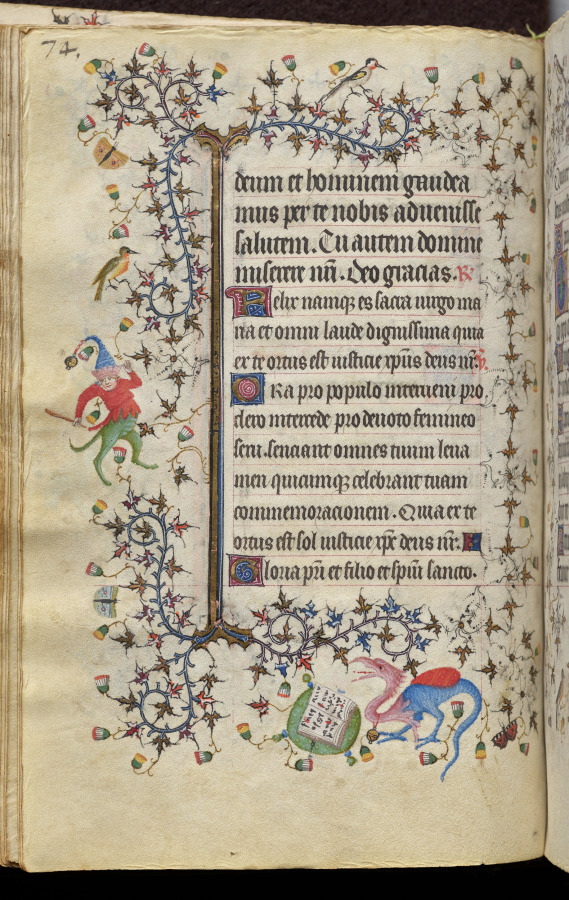 74.
deum et hominem gaudea
mus per te nobis advenisse
salutem. Tu autem domine
miserere nr̄i. Deo gracias. R̄
Felix namq; es sacra virgo ma
ria et omni laude dignissima quia
ex te ortus est iusticie xp̄us deus nr̄. V̄.
Ora pro populo interveni pro
clero intercede pro devoto femineo
sexu. senciant omnes tuum leva
men quicumq; celebrant tuam
commemoracionem. Quia ex te
ortus est sol iusticie xp̄c deus nr̄.
Gloria pr̄i et filio et sp̄iui sancto.